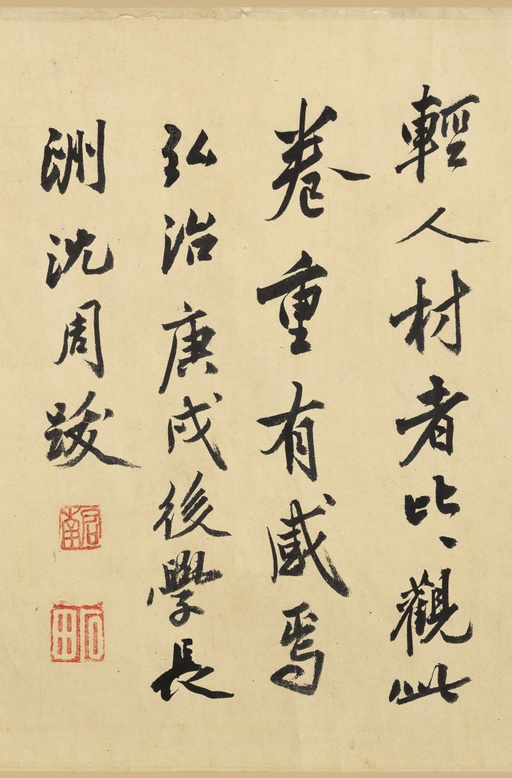 輕人材者比〻觀此
卷重有感焉
弘治庚戌後學長
洲沈周跋
啓南
石田